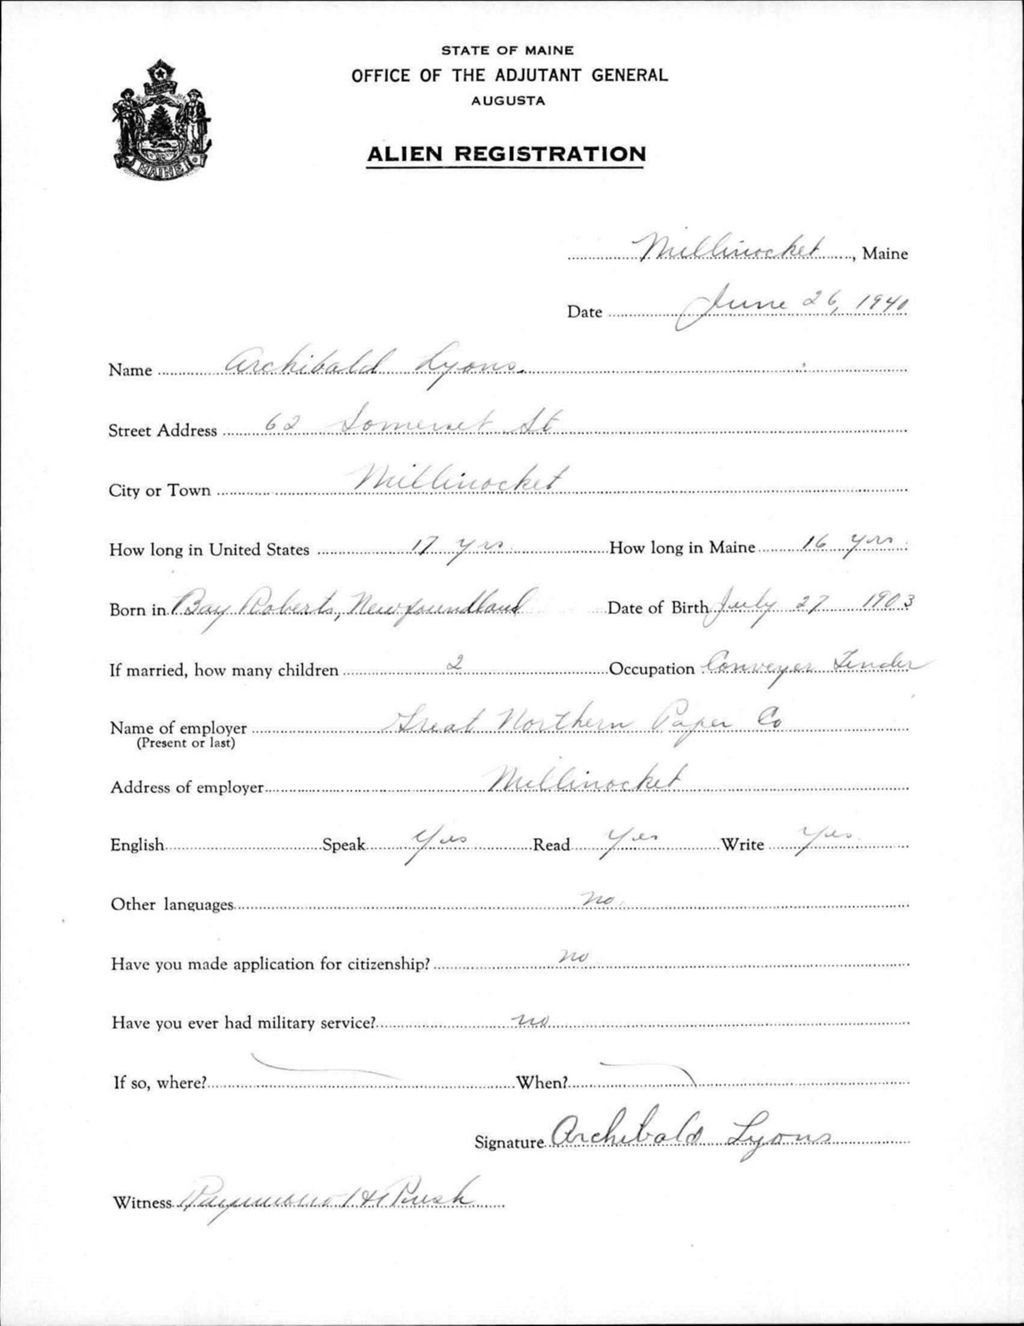 STATE OF MAINE
OFFICE OF THE ADJUTANT GENERAL
AUGUSTA
ALIEN REGISTRATION
MAINE
Millinocket, Maine
Date June 26, 1940
Name Archibald Lyons.
Street Address 62 Somerset St
City or Town Millinocket
How long in United States 17 yrs How long in Maine 16 yrs
Born in Bay Roberts, Newfoundland Date of Birth July 27 1903
If married, how many children 2 Occupation Conveyer Tender
Name of employer Great Northern Paper Co
(Present or last)
Address of employer Millinocket
English Speak Yes Read Yes Write Yes
Other languages no
Have you made application for citizenship? no
Have you ever had military service? no
If so, where? When?
Signature Archibald Lyons
Witness Raymond H